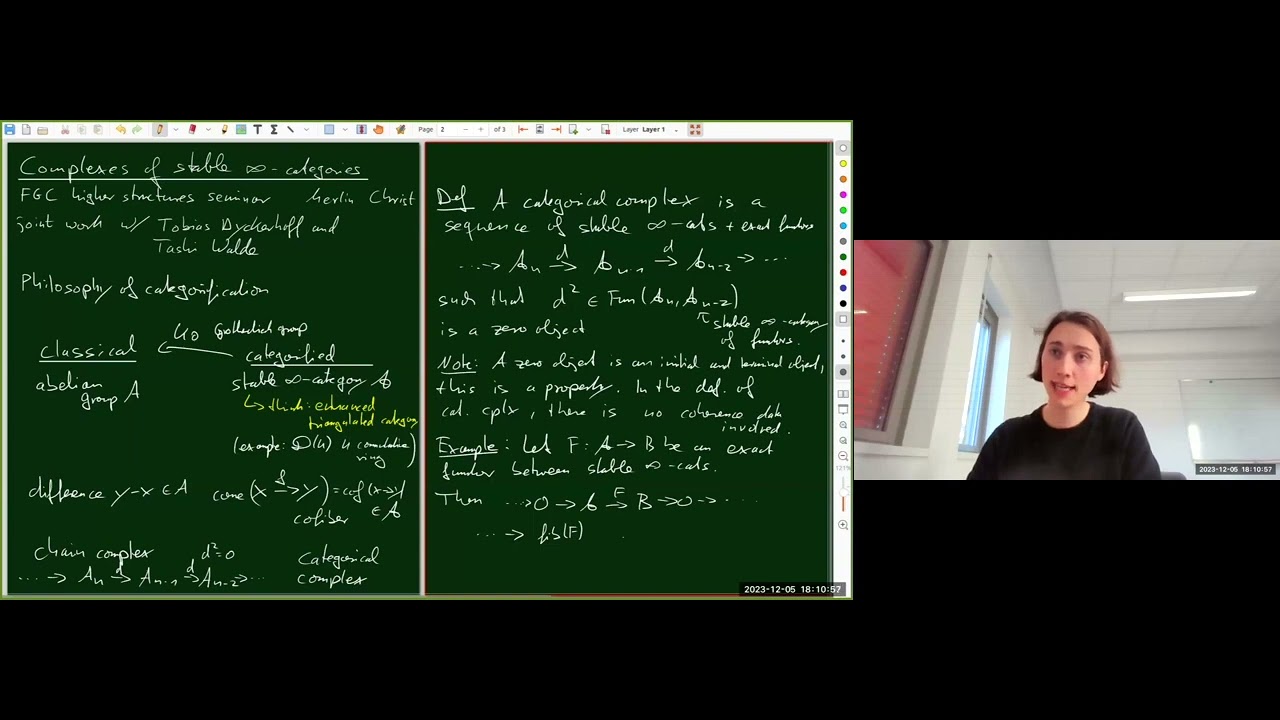 Page 2 of 3 Layer Layer 1
Complexes of stable ∞-categories
FGC higher structures seminar Merlin Christ
joint work w/ Tobias Dyckerhoff and
Tashi Walde
Philosophy of categorification
K₀ Grothendieck group
classical ← categorified
abelian group A
stable ∞-category A
↳ think: enhanced
triangulated category
(example: D(k) k commutative
ring)
difference y-x ∈ A
cone(X →f Y) = cof(X→Y)
cofiber ∈ A
chain complex d²=0
··· → Aₙ →d Aₙ₋₁ →d Aₙ₋₂ → ···
Categorical
complex
Def A categorical complex is a
sequence of stable ∞-cats + exact functors
··· → Aₙ →d Aₙ₋₁ →d Aₙ₋₂ → ···
such that d² ∈ Fun(Aₙ, Aₙ₋₂)
is a zero object
↖ stable ∞-category
of functors.
Note: A zero object is an initial and terminal object,
this is a property. In the def. of
cat. cplx, there is no coherence data
involved.
Example: Let F: A → B be an exact
functor between stable ∞-cats.
Then ··· → 0 → A →F B → 0 → ···
··· → fib(F)
121%
2023-12-05 18:10:57
2023-12-05 18:10:57